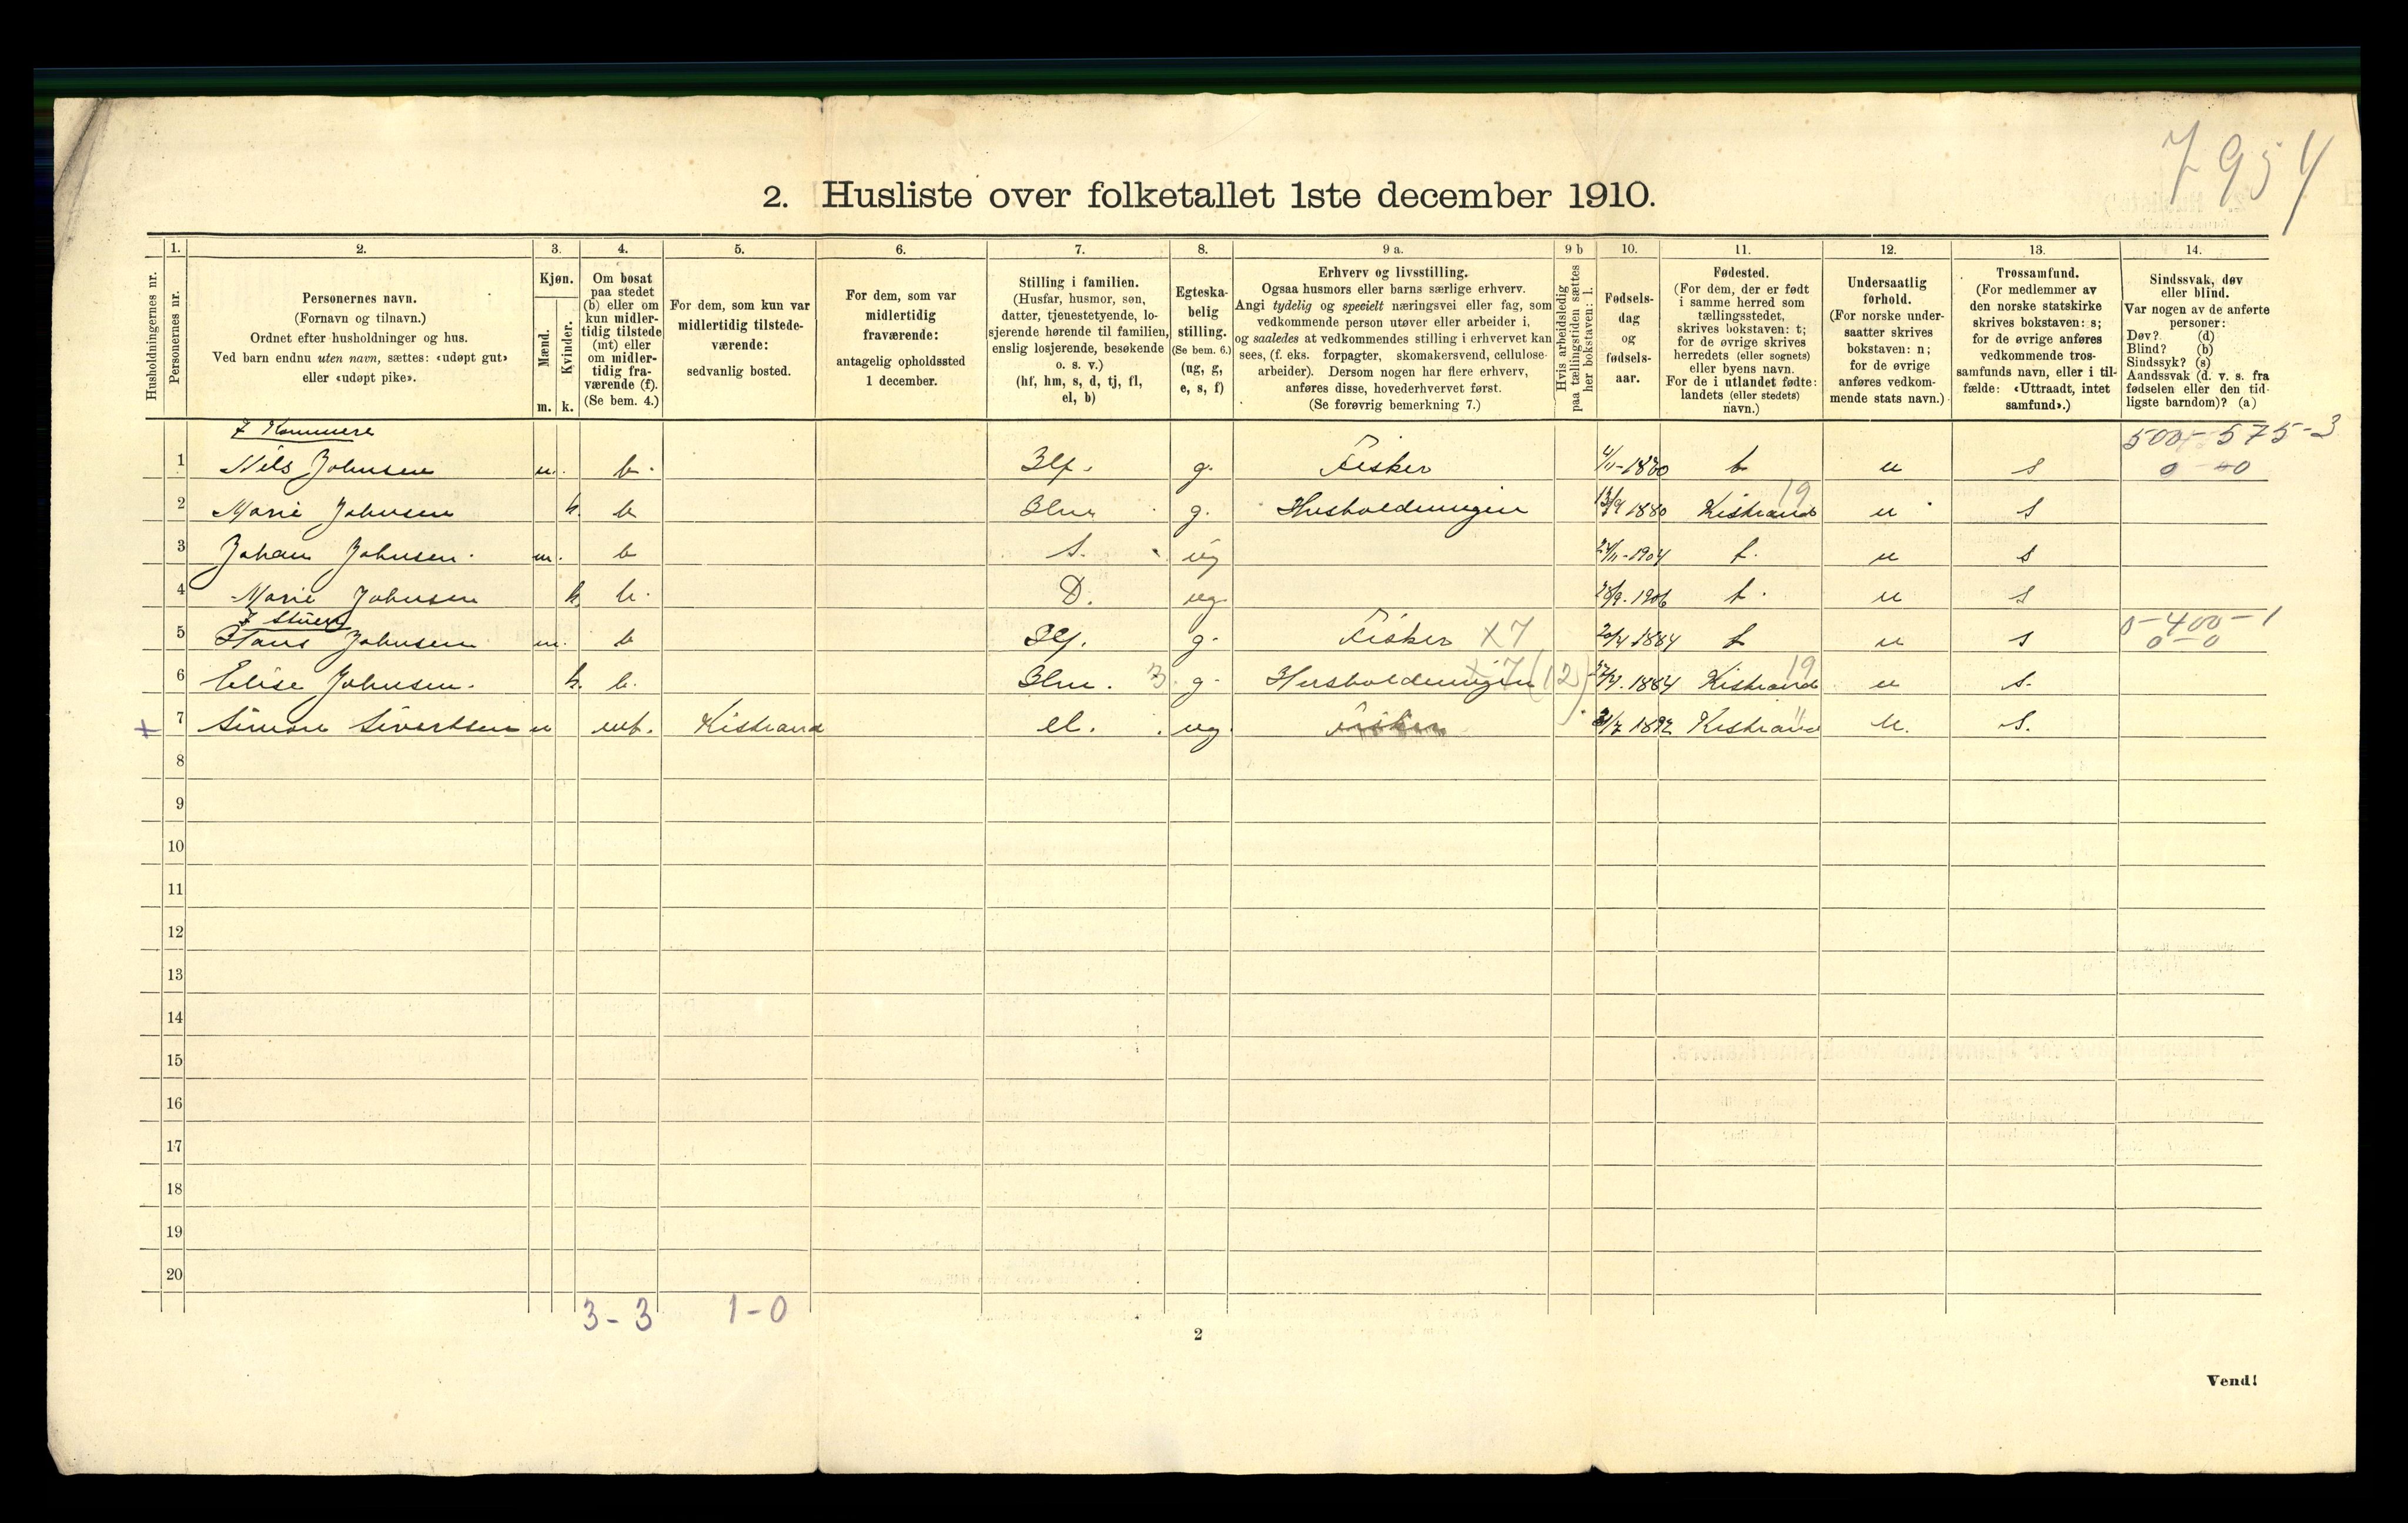 7954
2. Husliste over folketallet 1ste december 1910.
Husholdningernes nr.
1.
Personernes nr.
2.
Personernes navn.
(Fornavn og tilnavn.)
Ordnet efter husholdninger og hus.
Ved barn endnu uten navn, sættes: «udøpt gut»
eller «udøpt pike».
3.
Kjøn.
Mænd.
Kvinder.
m. k.
4.
Om bosat
paa stedet
(b) eller om
kun midler-
tidig tilstede
(mt) eller
om midler-
tidig fra-
værende (f).
(Se bem. 4.)
5.
For dem, som kun var
midlertidig tilstede-
værende:
sedvanlig bosted.
6.
For dem, som var
midlertidig
fraværende:
antagelig opholdssted
1 december.
7.
Stilling i familien.
(Husfar, husmor, søn,
datter, tjenestetyende, lo-
sjerende hørende til familien,
enslig losjerende, besøkende
o. s. v.)
(hf, hm, s, d, tj, fl,
el, b)
8.
Egteska-
belig
stilling.
(Se bem. 6.)
(ug, g,
e, s, f)
9 a.
Erhverv og livsstilling.
Ogsaa husmors eller barns særlige erhverv.
Angi tydelig og specielt næringsvei eller fag, som
vedkommende person utøver eller arbeider i,
og saaledes at vedkommendes stilling i erhvervet kan
sees, (f. eks. forpagter, skomakersvend, cellulose-
arbeider). Dersom nogen har flere erhverv,
anføres disse, hovederhvervet først.
(Se forøvrig bemerkning 7.)
9 b
Hvis arbeidsledig
paa tællingstiden sættes
her bokstaven: l.
10.
Fødsels-
dag
og
fødsels-
aar.
11.
Fødested.
(For dem, der er født
i samme herred som
tællingsstedet,
skrives bokstaven: t;
for de øvrige skrives
herredets (eller sognets)
eller byens navn.
For de i utlandet fødte:
landets (eller stedets)
navn.)
12.
Undersaatlig
forhold.
(For norske under-
saatter skrives
bokstaven: n;
for de øvrige
anføres vedkom-
mende stats navn.)
13.
Trossamfund.
(For medlemmer av
den norske statskirke
skrives bokstaven: s;
for de øvrige anføres
vedkommende tros-
samfunds navn, eller i til-
fælde: «Uttraadt, intet
samfund».)
14.
Sindssvak, døv
eller blind.
Var nogen av de anførte
personer:
Døv? (d)
Blind? (b)
Sindssyk? (s)
Aandssvak (d. v. s. fra
fødselen eller den tid-
ligste barndom)? (a)
I Kammere 500-575-3
1 Nils Johnsen m. b. Hf. g. Fisker 4/11-1880 t n s 0-0
2 Marie Johnsen k. b Hm g. Husholdningen 13/9 1880 Kistrand 19 n s
3 Johan Johnsen. m. b s. ug 24/11-1904 t. n s
4 Marie Johnsen k. b. D. ug. 28/9.1906 t. n s
I Stuen 0-400-1
5 Hans Johnsen m. b Hf. g. Fisker X7 20/4 1884 t n s 0-0
6 Elise Johnsen. k. b. Hm. 3. g. Husholdningen X7 (12) 1884 Kistrand 19 n s.
X 7 Simon Sivertsen m mt. Kistrand el. ug. Fisker 1892 Kistrand n. s.
8
9
10
11
12
13
14
15
16
17
18
19
20
3-3 1-0
2
Vend!